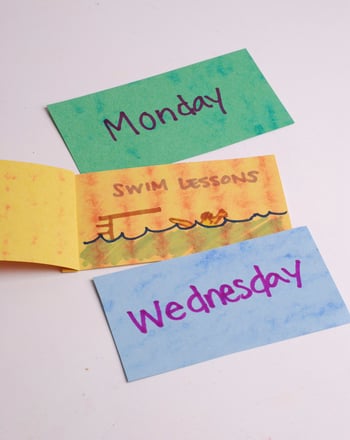 Monday
SWIM LESSONS
Wednesday